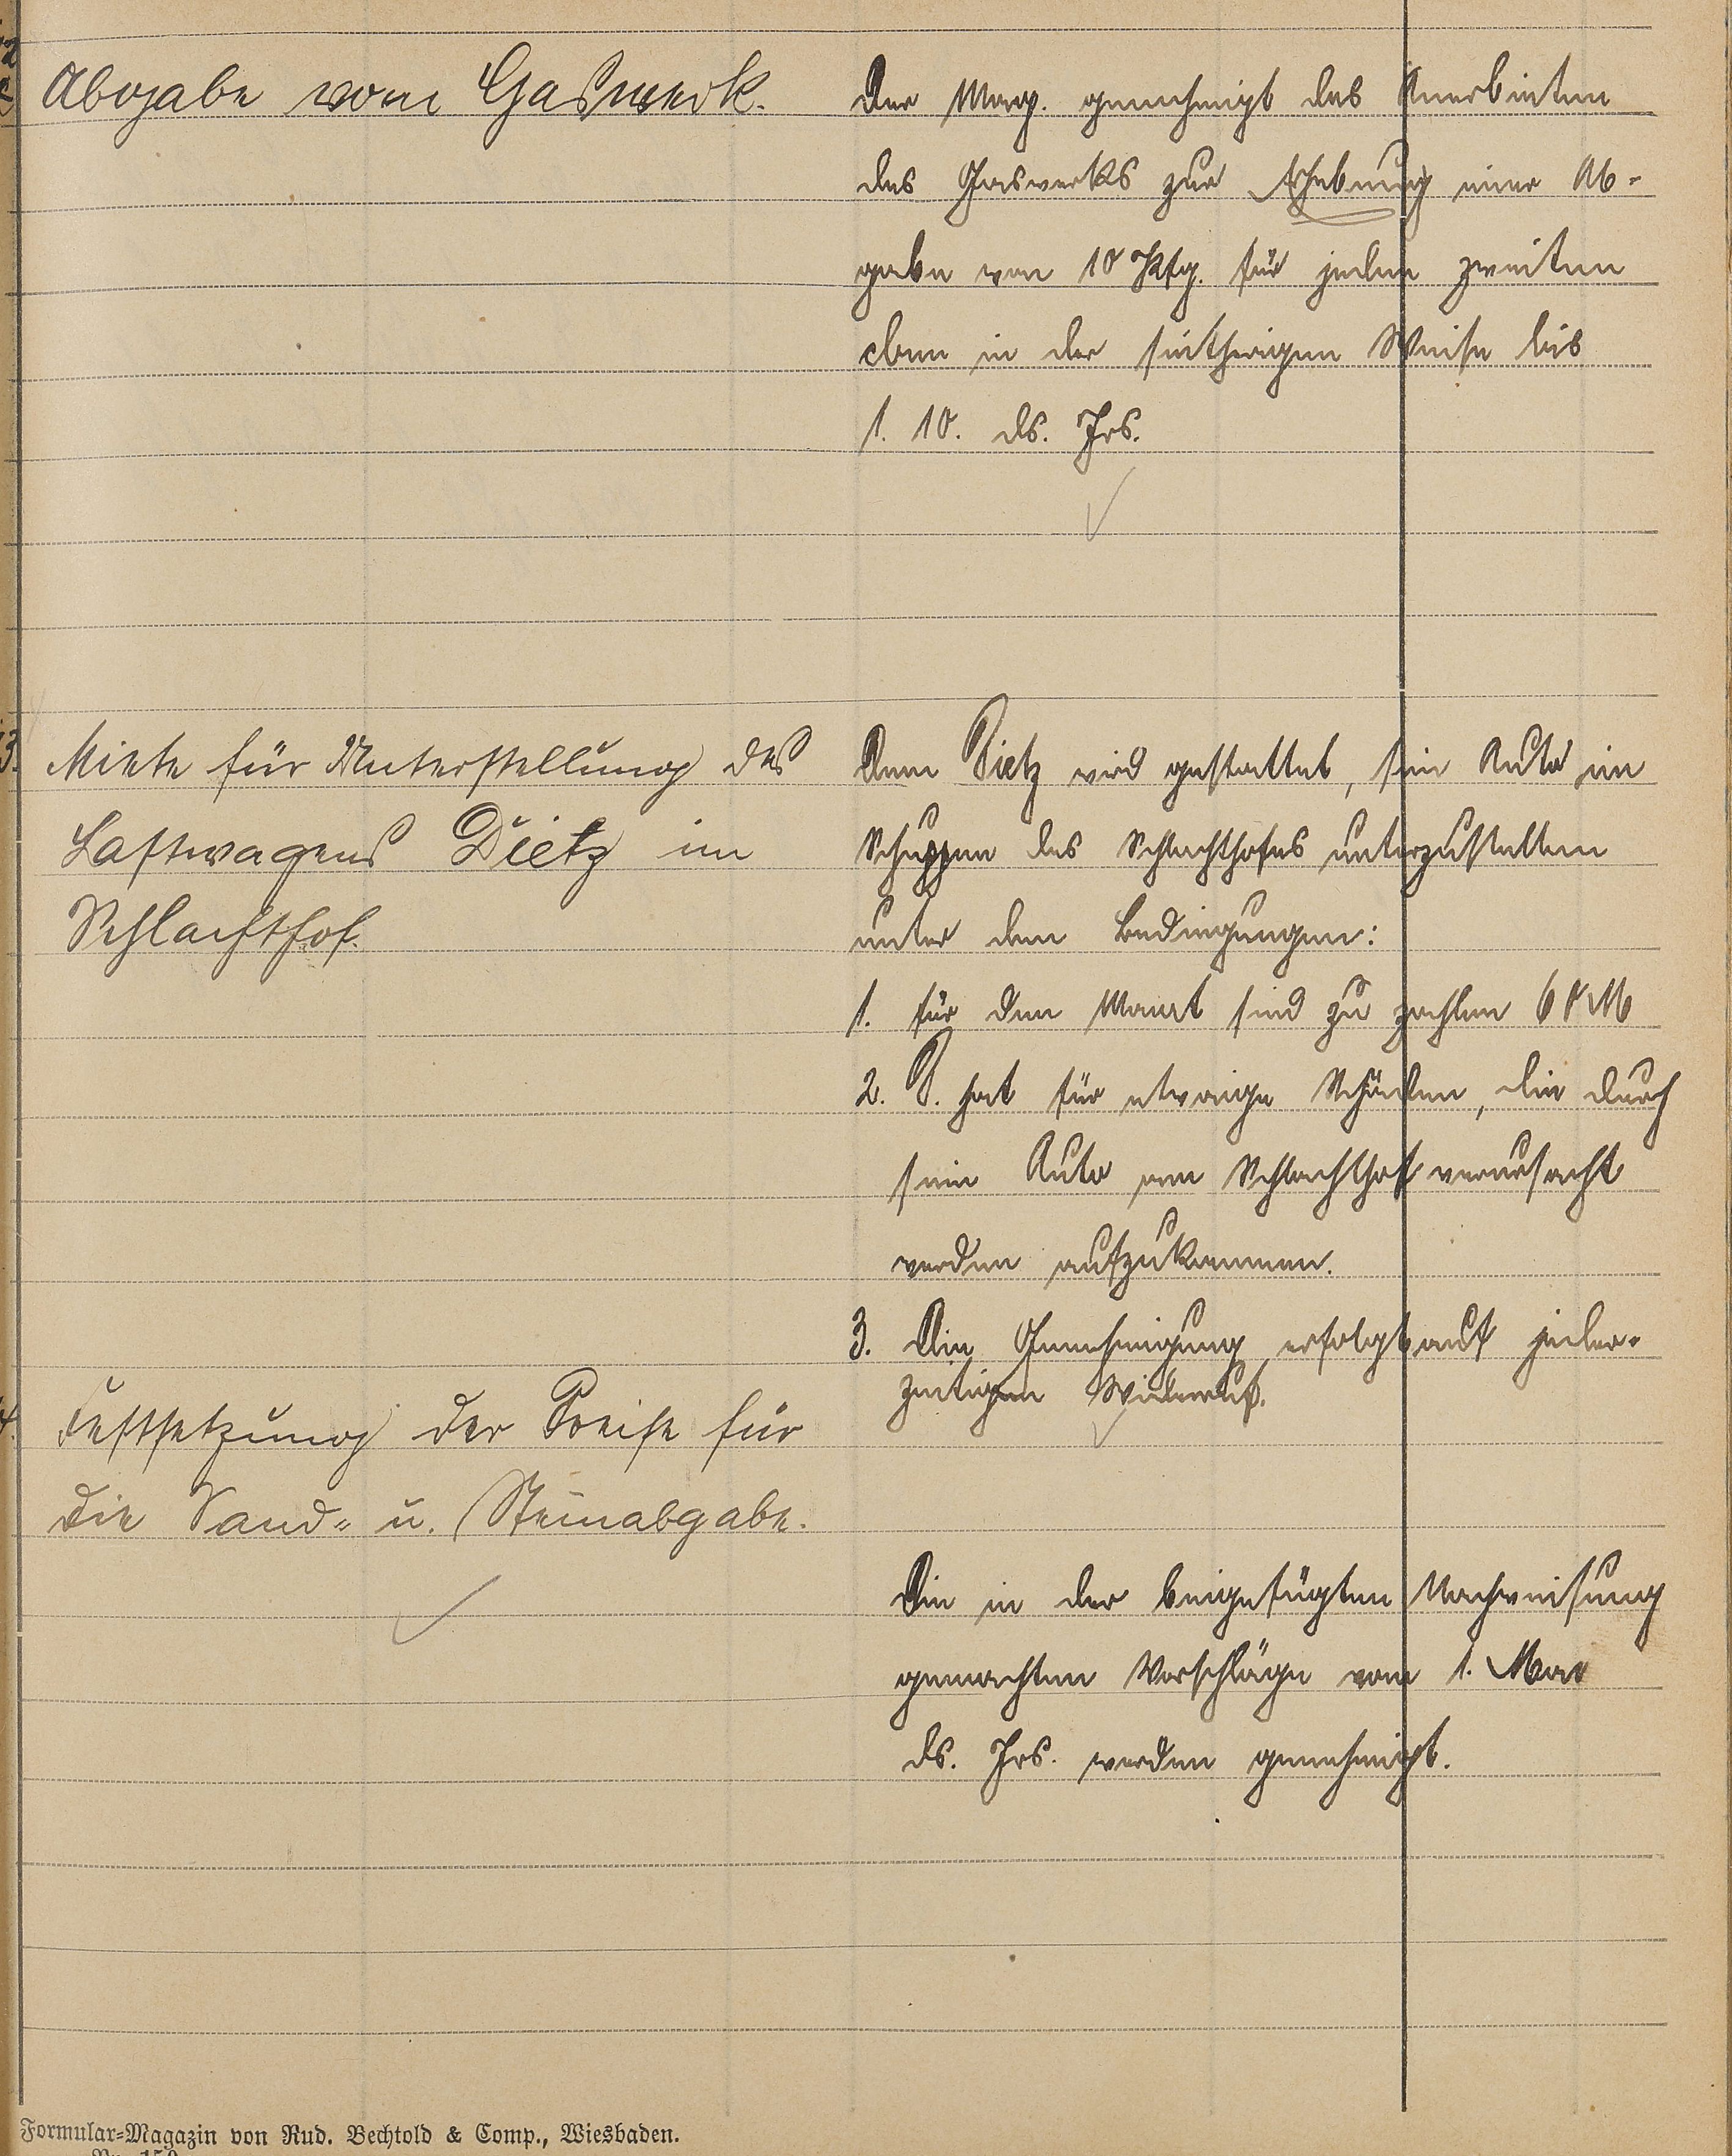 Abgabe vom Gaswerk.
Der Mag. genehmigt das Anerbieten
des Gaswerks zur Erhebung einer Ab-
gabe von 10 Pfg. für jeden zweiten
cbm in der seitherigen Weise bis
1. 10. ds. Jrs.
Miete für Unterstellung des
Lastwagens Dietz im
Schlachthof.
Dem Dietz wird gestattet, sein Auto im
Schuppen des Schlachthofes unterzustellen
unter den Bedingungen:
1. für den Monat sind zu zahlen 6 RM
2. D. hat für etwaige Schäden, die durch
sein Auto am Schlachthof verursacht
werden aufzukommen.
3. Die Genehmigung erfolgt auf jeder-
zeitigen Widerruf.
Festsetzung der Preise für
die Sand- u. Steinabgabe.
Die in der beigefügten Nachweisung
gemachten Vorschläge vom 1. Mai
ds. Jrs. werden genehmigt.
Formular-Magazin von Rud. Bechtold & Comp., Wiesbaden.